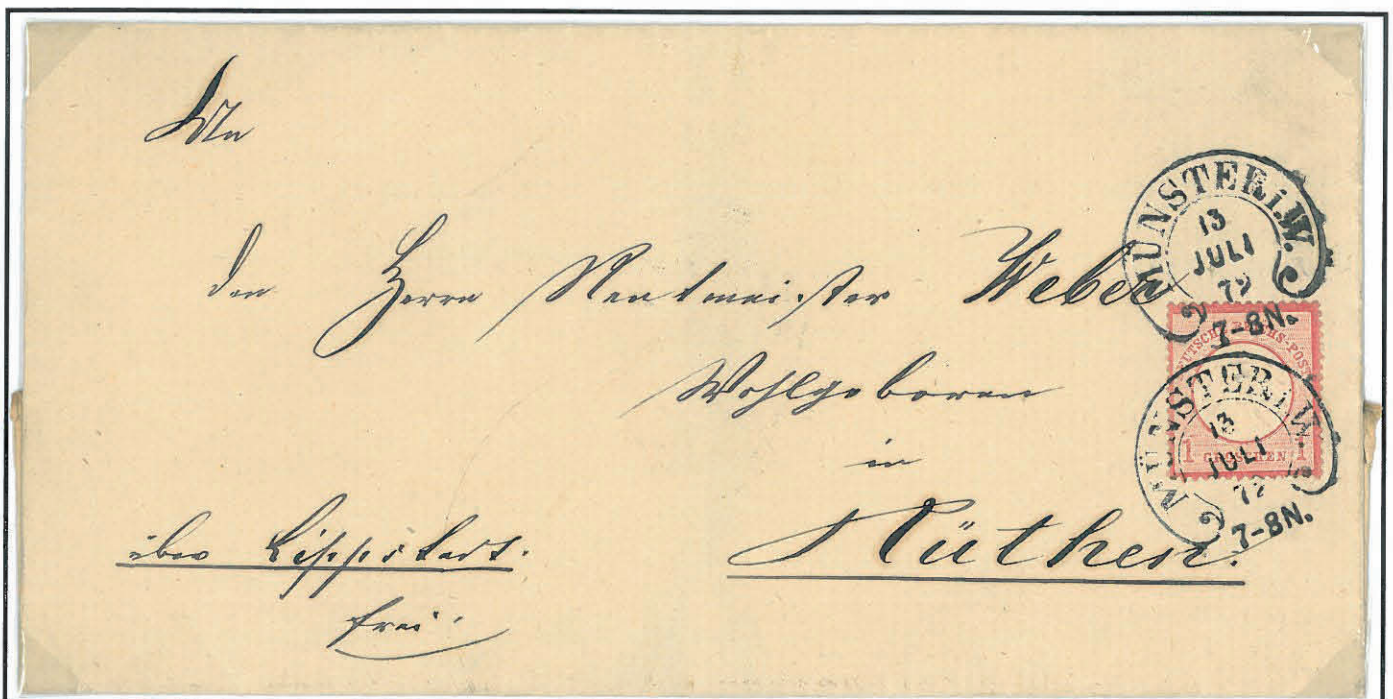 An
den Herrn Rentmeister Weber
Wohlgeboren
in
Rüthen.
über Lippstadt.
frei.
MÜNSTER i.W.
13
JULI
72
7-8N.
DEUTSCHE REICHS-POST
1 GROSCHEN 1
MÜNSTER i.W.
13
JULI
72
7-8N.